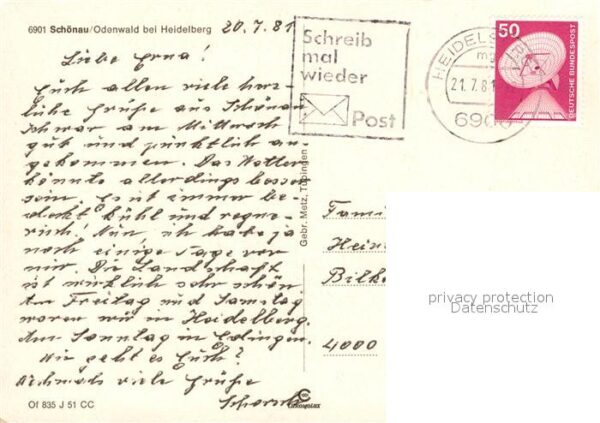 6901 Schönau/Odenwald bei Heidelberg
20.7.81
Schreib
mal
wieder
Post
21.7.81
50
DEUTSCHE BUNDESPOST
Liebe Erna!
Euch allen viele herz-
liche Grüße aus Schönau
Ich war am Mittwoch
gut und pünktlich an-
gekommen. Das Wetter
könnte allerdings besser
sein. Es ist immer be-
deckt kühl und regne-
risch! Nun, ich habe ja
noch einige Tage vor
mir. Die Landschaft
ist wirklich sehr schön
Am Freitag und Samstag
waren wir in Heidelberg.
Am Sonntag in
Wie geht es Euch?
Nochmals viele Grüße
Gebr. Metz, Tübingen
Fami
Hein
Bilk
4000
privacy protection
Datenschutz
Of 835 J 51 CC